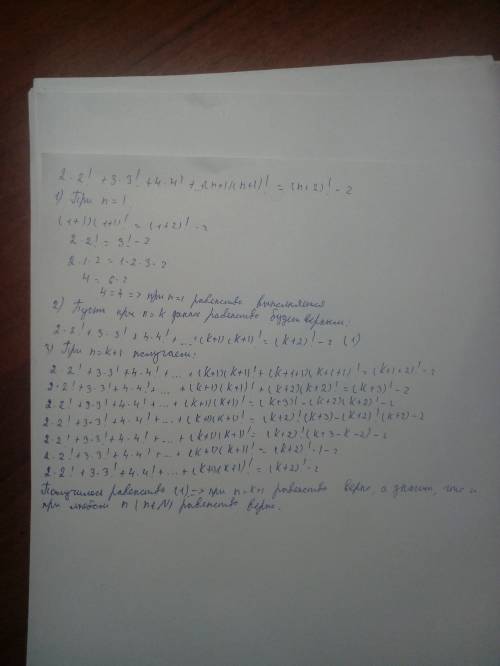 2·2! + 3·3! + 4·4! + (n+1)(n+1)! = (n+2)! - 2
1) При n=1
(1+1)(1+1)! = (1+2)! - 2
2·2! = 3! - 2
2·1·2 = 1·2·3 - 2
4 = 6-2
4=4 => при n=1 равенство выполняется
2) Пусть при n=k данное равенство будет верным:
2·2! + 3·3! + 4·4! + ... + (k+1)(k+1)! = (k+2)! - 2 (1)
3) При n=k+1 получаем:
2·2! + 3·3! + 4·4! + ... + (k+1)(k+1)! + (k+1+1)(k+1+1)! = (k+1+2)! - 2
2·2! + 3·3! + 4·4! + ... + (k+1)(k+1)! + (k+2)(k+2)! = (k+3)! - 2
2·2! + 3·3! + 4·4! + ... + (k+1)(k+1)! = (k+3)! - (k+2)(k+2)! - 2
2·2! + 3·3! + 4·4! + ... + (k+1)(k+1)! = (k+2)!(k+3) - (k+2)!(k+2) - 2
2·2! + 3·3! + 4·4! + ... + (k+1)(k+1)! = (k+2)!(k+3-k-2) - 2
2·2! + 3·3! + 4·4! + ... + (k+1)(k+1)! = (k+2)!·1 - 2
2·2! + 3·3! + 4·4! + ... + (k+1)(k+1)! = (k+2)! - 2
Получилось равенство (1) => при n=k+1 равенство верно, а значит, что и
при любом n (n∈N) равенство верно.